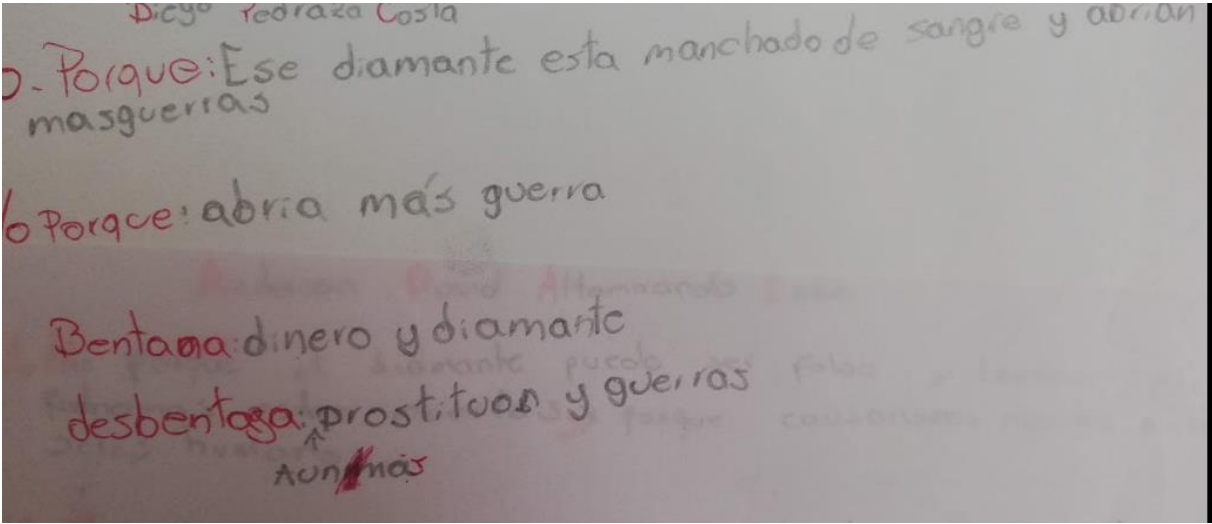 Diego Pedraza Costa
o. Porque: Ese diamante esta manchado de sangre y abrian
masguerras
b Porque: abria más guerra
Bentaga: dinero y diamante
desbentaga: prostituon y guerras
Aun más